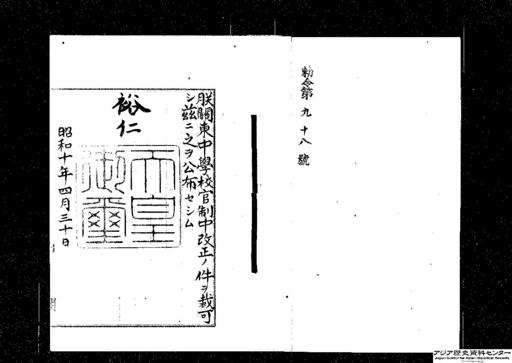 勅令第九十八號
朕關東中學校官制中改正ノ件ヲ裁可
シ茲ニ之ヲ公布セシム
裕仁
天皇
御璽
昭和十年四月三十日
アジア歴史資料センター
Japan Center for Asian Historical Records